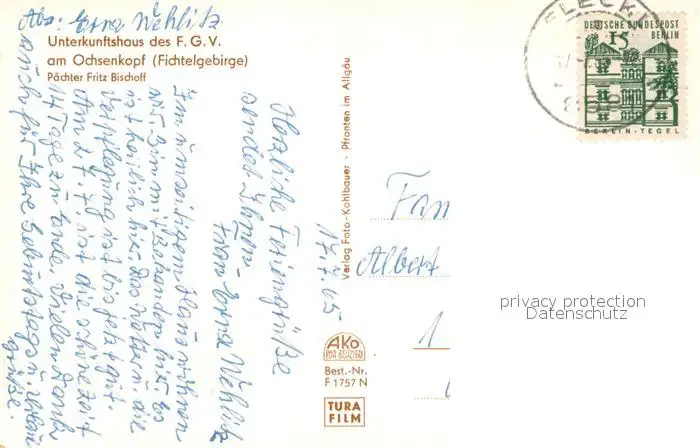 Abs: Erna Wehlitz
Unterkunftshaus des F. G. V.
am Ochsenkopf (Fichtelgebirge)
Pächter Fritz Bischoff
Herzliche Feriengrüße
sendet Ihnen
Frau Erna Wehlitz
17.7.65
wohnen
wir Zimmer mit
ist herrlich hier das Wettern. die
Verpflegung ist bis jetzt gut.
Am 27.7. ist die schöne Zeit
14 Tage zu Ende. Vielen Dank
auch für Ihre Geburtstags u.
grüße.
Verlag Foto-Kohlbauer · Pfronten im Allgäu
Fam
Albert
1
AKO
DAS ZEICHEN
FÜR QUALITÄT
Best.-Nr.
F 1757 N
TURA
FILM
FLECKL
DEUTSCHE BUNDESPOST
BERLIN
15
BERLIN-TEGEL
privacy protection
Datenschutz